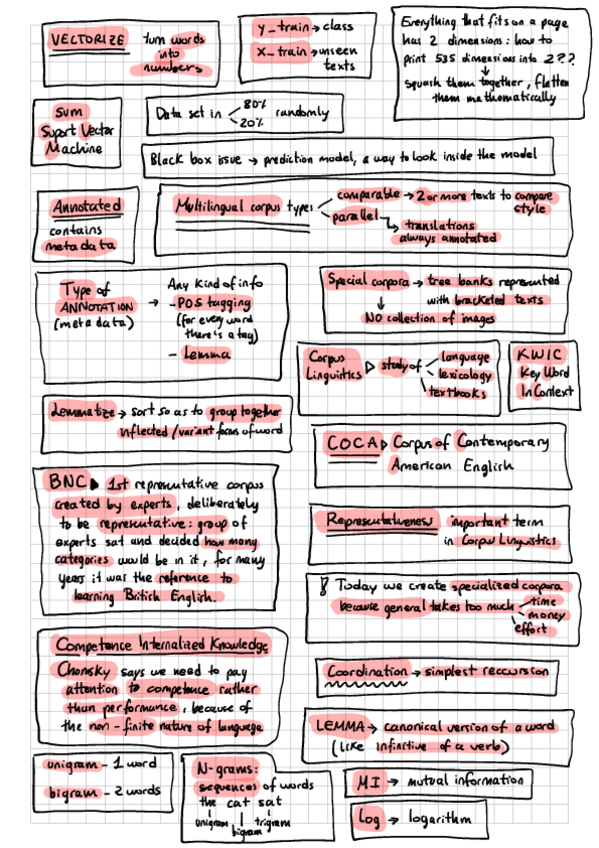 VECTORIZE turn words
into
numbers
y_train → class
x_train → unseen
texts
Everything that fits on a page
has 2 dimensions: how to
print 535 dimensions into 2??
squash them together, flatten
them mathematically
SUM
Suport Vector
Machine
Data set in 80% randomly
20%
Black box issue → prediction model, a way to look inside the model
Annotated
contains
metadata
Multilingual corpus types
comparable → 2 or more texts to compare
style
parallel
translations
always annotated
Type of
ANNOTATION
(meta data)
→ Any kind of info
- POS tagging
(for every word
there's a tag)
- Lemma
Special corpora → tree banks represented
with bracketed texts
NO collection of images
Corpus
Linguistics
study of
language
lexicology
textbooks
KWIC
Key Word
In Context
Lemmatize → sort so as to group together
inflected/variant forms of word
COCA Corpus of Contemporary
American English
BNC 1st representative corpus
created by experts, deliberately
to be representative: group of
experts sat and decided how many
categories would be in it, for many
years it was the reference to
learning British English.
Representativeness important term
in Corpus Linguistics
! Today we create specialized corpora
because general takes too much time
money
effort
Competence Internalized Knowledge
Chomsky says we need to pay
attention to competence rather
than performance, because of
the non-finite nature of language
Coordination → simplest reccursion
LEMMA → canonical version of a word
(like infinitive of a verb)
unigram - 1 word
bigram - 2 words
N-grams:
sequences of words
the cat sat
unigram trigram
bigram
MI → mutual information
Log → logarithm